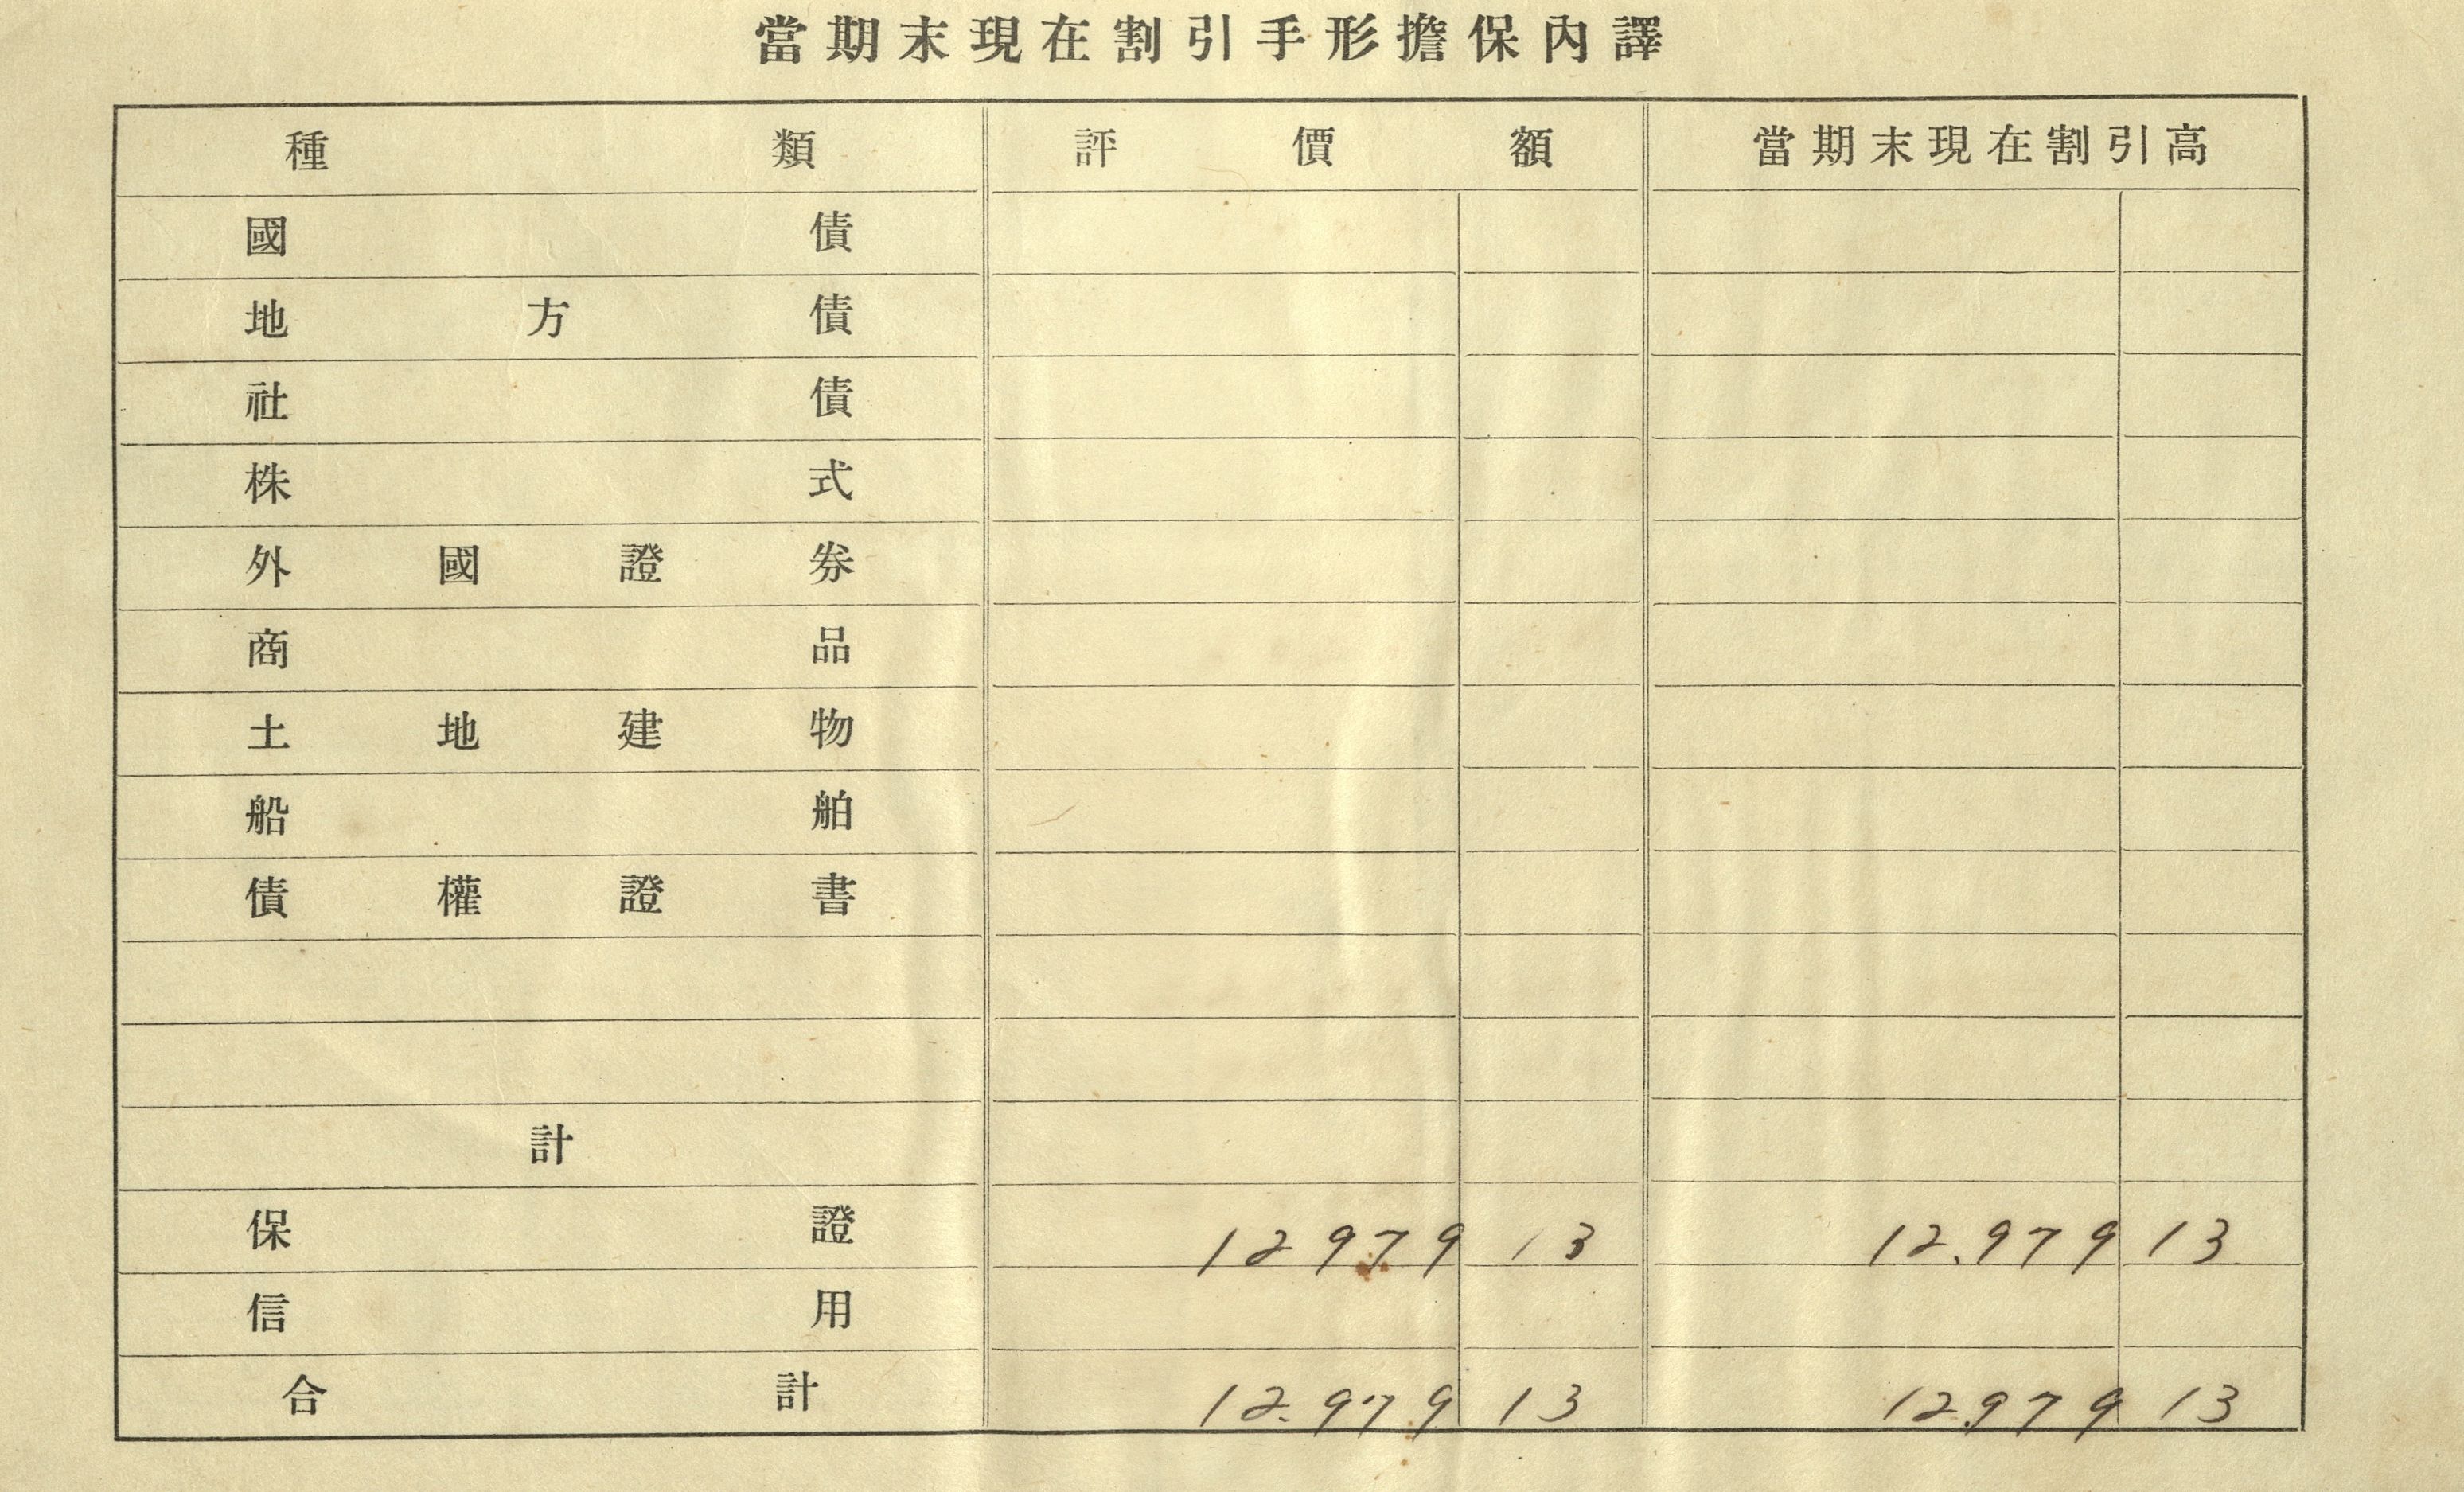 當期末現在割引手形擔保內譯
種類 評價額 當期末現在割引高
國債
地方債
社債
株式
外國證券
商品
土地建物
船舶
債權證書
計
保證 12979 13 12.979 13
信用
合計 12.979 13 12.979 13